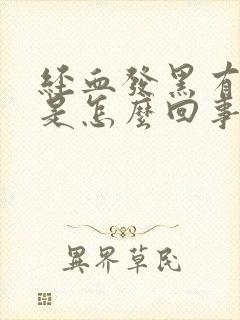 經血發黑有
是怎麼回事
異界草民